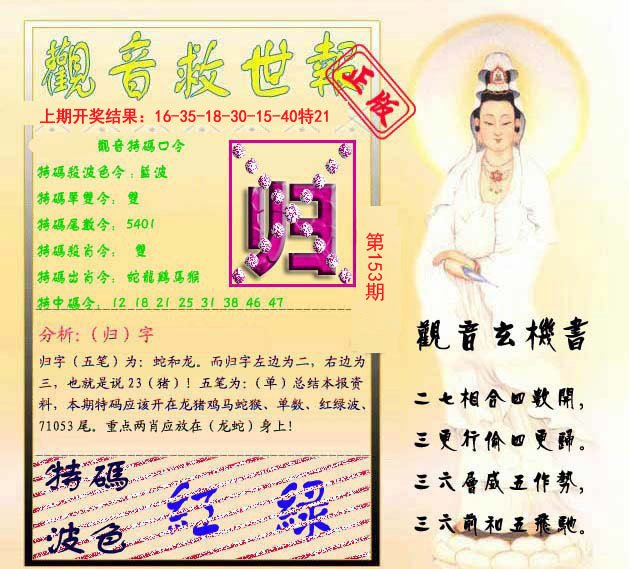 觀音救世報
正版
上期开奖结果：16-35-18-30-15-40特21
觀音特碼口令
特碼殺波色令：藍波
特碼單雙令： 雙
特碼尾數令： 5401
特碼殺肖令： 雙
特碼出肖令： 蛇龍鷄馬猴
特中碼令： 12 18 21 25 31 38 46 47
归
第153期
分析：（归）字
归字（五笔）为：蛇和龙。而归字左边为二，右边为
三，也就是说 23（猪）！五笔为：（单）总结本报资
料，本期特码应该开在龙猪鸡马蛇猴、单数、红绿波、
71053 尾。重点两肖应放在（龙蛇）身上！
特碼
波色
紅 綠
觀音玄機書
二七相合四數開，
三更行偷四更歸。
三六層威五作勢，
三六前和五飛馳。